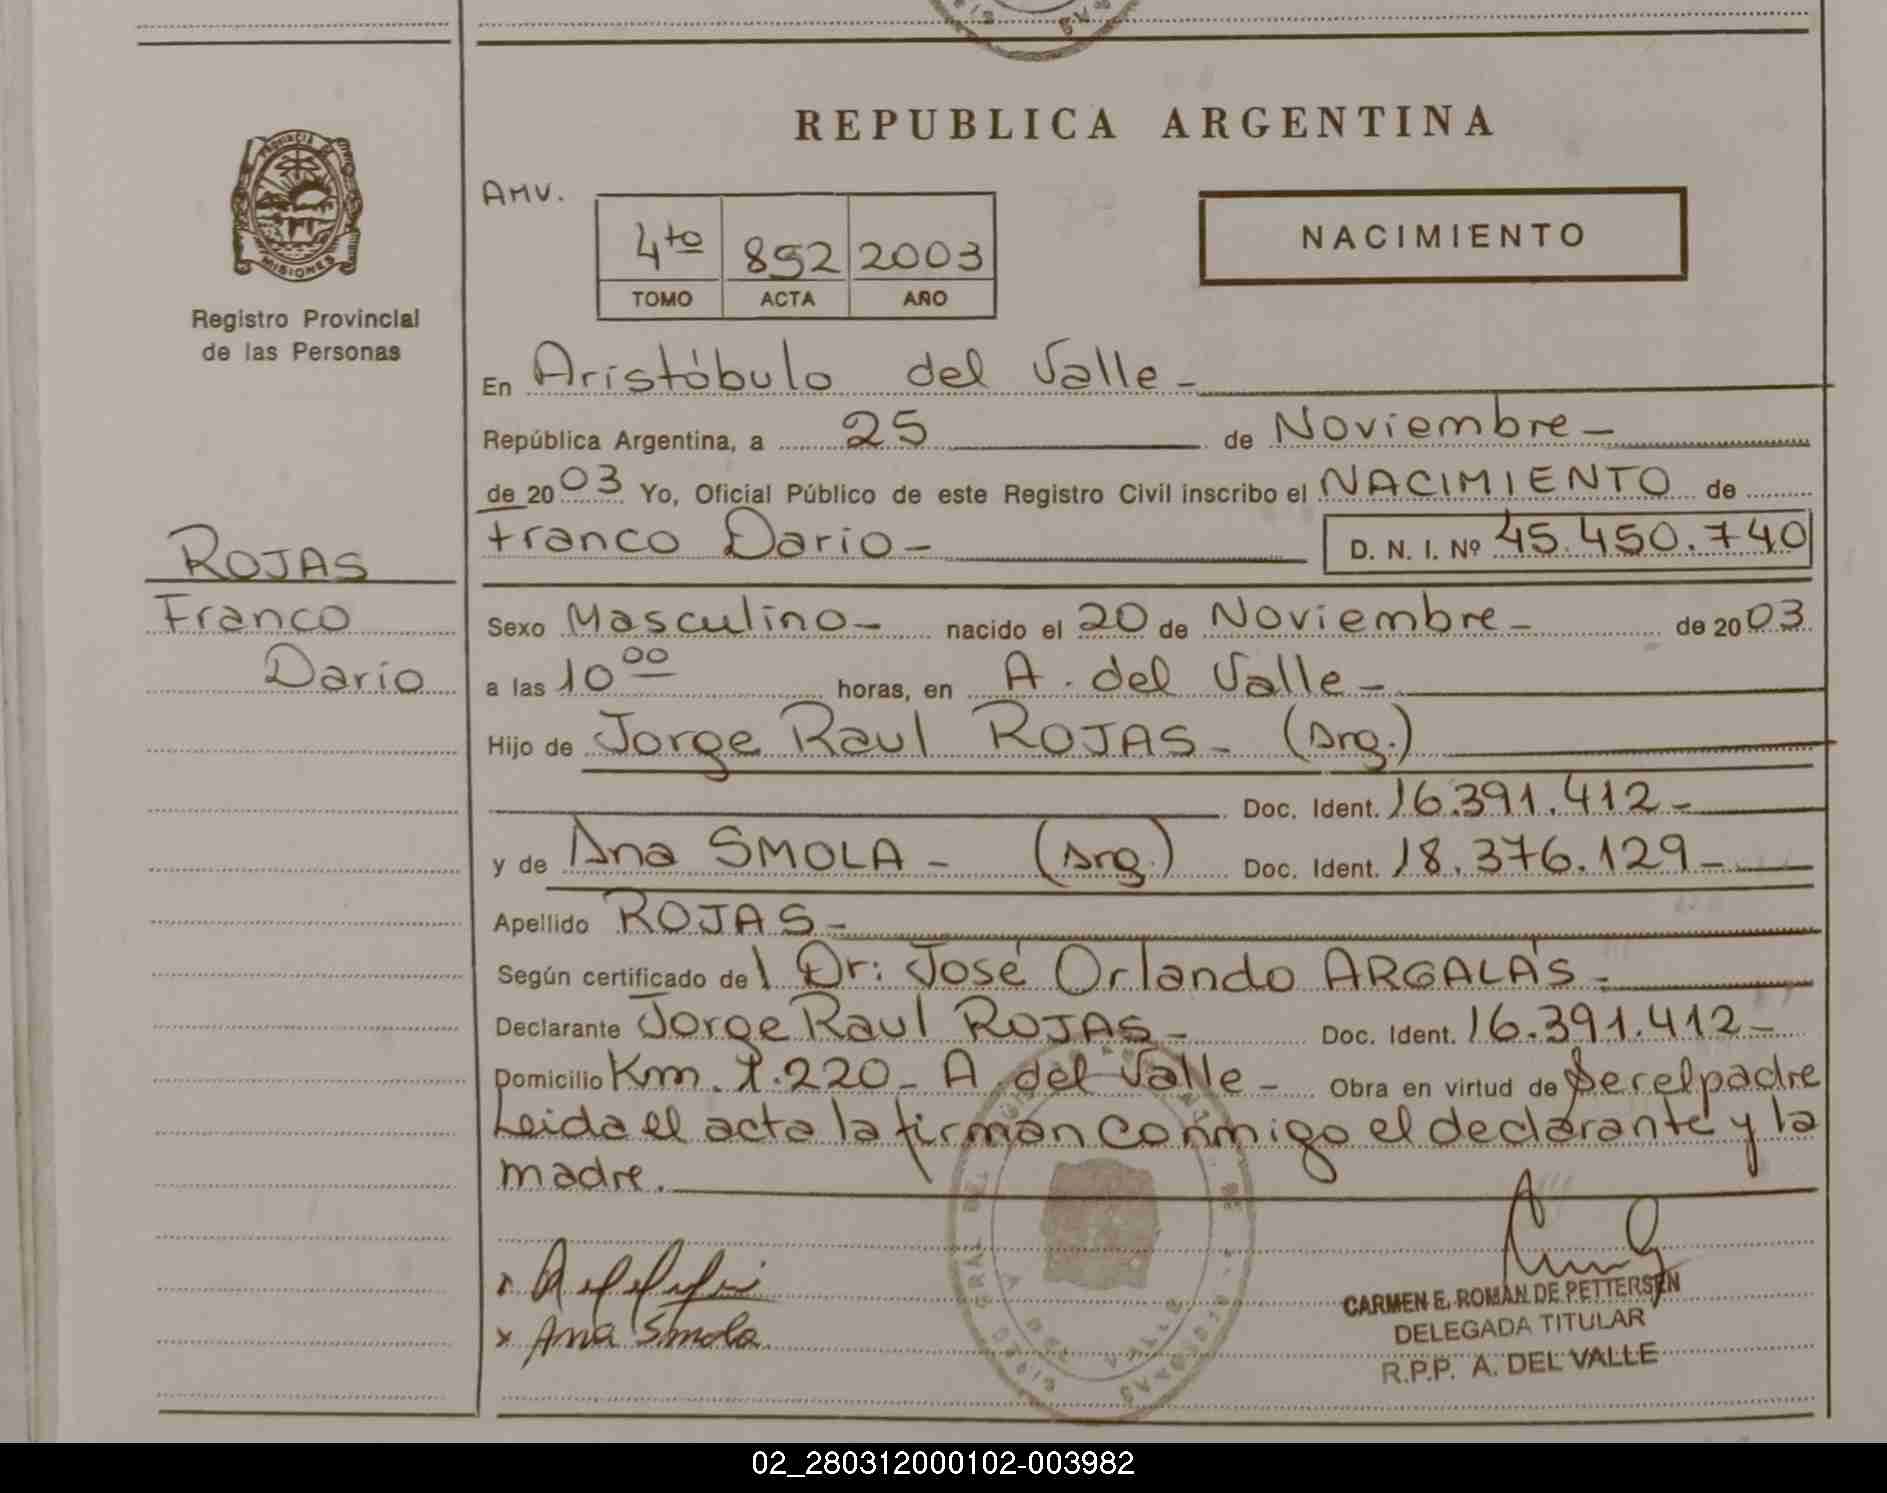 REPUBLICA ARGENTINA
PROVINCIA DE
MISIONES
Registro Provincial
de las Personas
AMV.
4to 892 2003
TOMO ACTA AÑO
NACIMIENTO
En Aristóbulo del Valle -
República Argentina, a 25 de Noviembre -
de 2003 Yo, Oficial Público de este Registro Civil inscribo el NACIMIENTO de
Franco Dario - D. N. I. Nº 45.450.740
ROJAS
Franco
Darío
Sexo Masculino - nacido el 20 de Noviembre - de 2003
a las 10 00 horas, en A. del Valle -
Hijo de Jorge Raul ROJAS - (Arg.)
Doc. Ident. 16.391.412 -
y de Ana SMOLA - (Arg.) Doc. Ident. 18.376.129 -
Apellido ROJAS -
Según certificado del Dr: José Orlando ARGALÁS -
Declarante Jorge Raul ROJAS - Doc. Ident. 16.391.412 -
Domicilio Km. 1.220 - A. del Valle - Obra en virtud de ser el padre
Leida el acta la firman conmigo el declarante y la
madre.
x Ana Smola
CARMEN E. ROMAN DE PETTERSEN
DELEGADA TITULAR
R.P.P. A. DEL VALLE
02_280312000102-003982